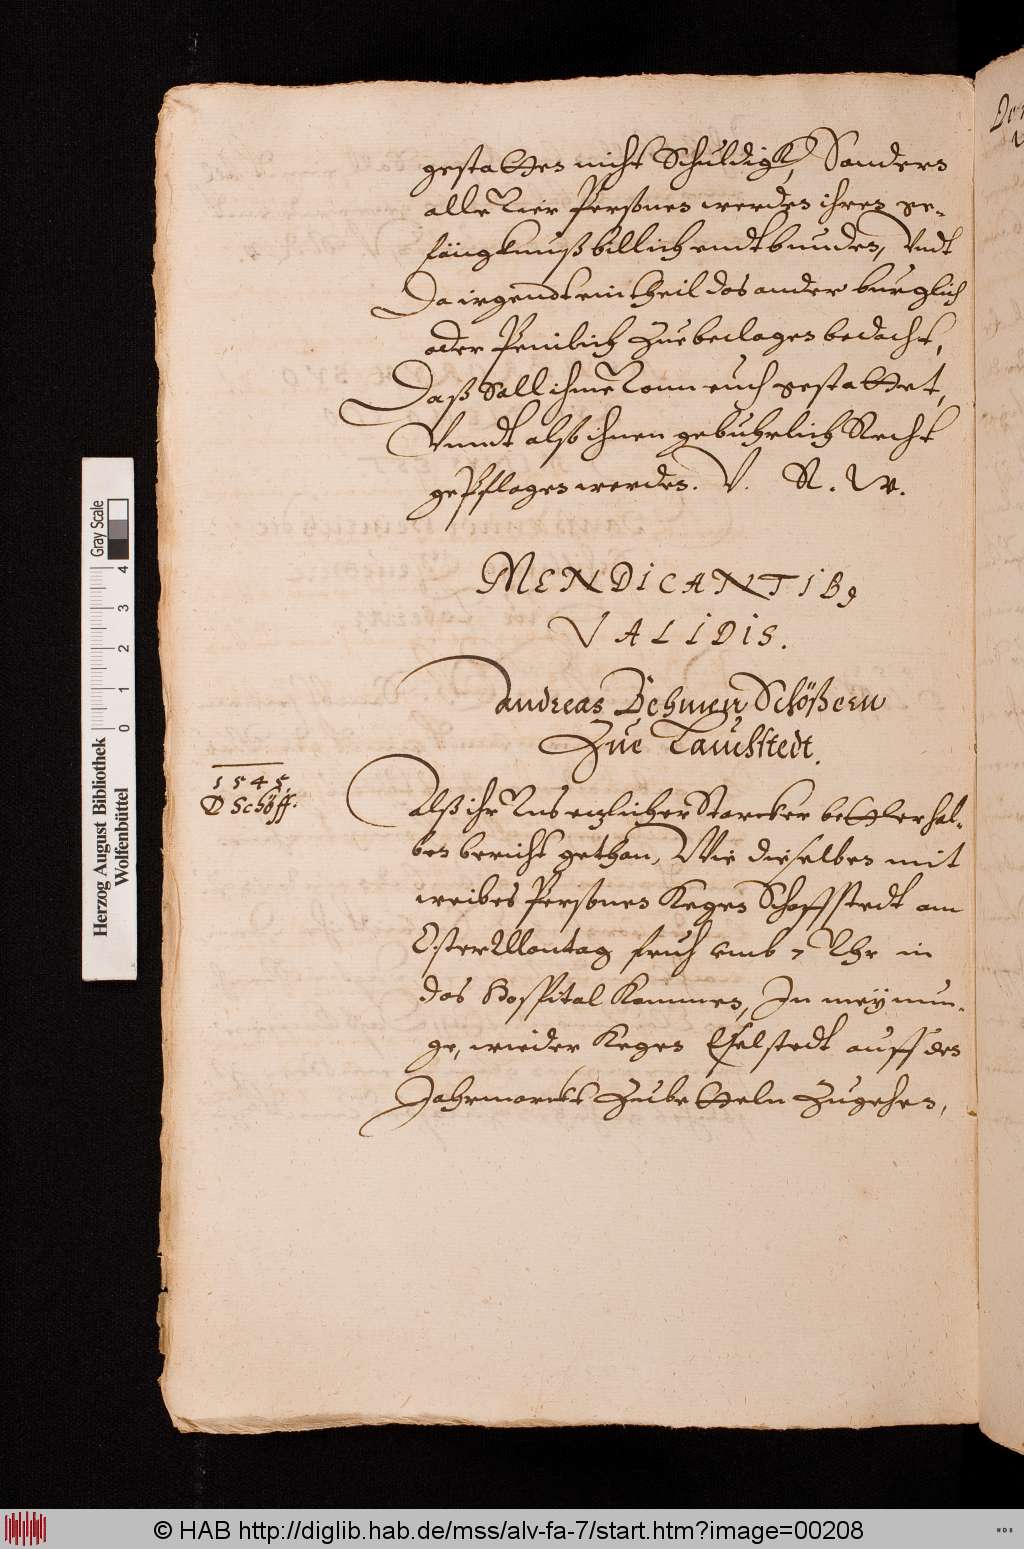 gestatten nicht Schuldigk, Sondern
alle Vier Personen werden ihres ge-
fängknuß billich endtbunden, Vndt
Da irgendt ein theil das ander burglich
oder Peinlich Zue beclagen bedacht,
Daß Sall ihme Vonn euch gestattet,
Vnndt alß ihnen gebuhrlich Recht
gepflagen werden. V. R. W.
MENDICANTIB9
VALIDIS.
andreas Behmen Schößern
Zue Lauchstedt.
1545.
D Schöff.
Alß ihr Vns etzlicher Starcker bettler hal-
ben bericht gethan, Wie dieselben mit
weibes Personen Kegen Schaffstedt am
OsterMontag fruh vmb 7 Vhr in
das Hospital Kommen, In meynun-
ge, wieder Kegen Eselstedt auff den
Jahrmarckt Zubetteln Zugehen,
Herzog August Bibliothek
Wolfenbüttel
0 1 2 3 4
Gray Scale
© HAB http://diglib.hab.de/mss/alv-fa-7/start.htm?image=00208